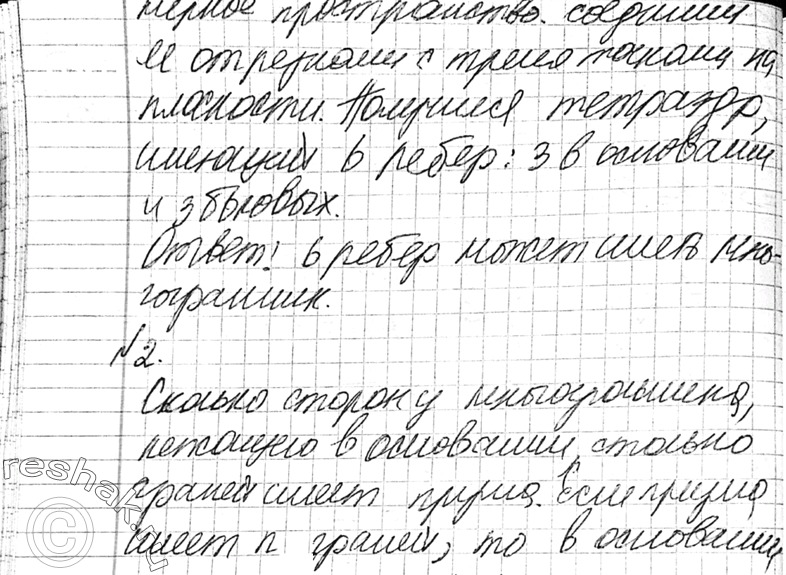 мерное пространство. соединим
её отрезками с тремя точками на
плоскости. Получился тетраэдр,
имеющий 6 ребер: 3 в основании
и 3 боковых.
Ответ: 6 ребер может иметь мно-
гогранник.
№2.
Сколько сторон у многогранника,
лежащего в основании, столько
граней имеет призма. Если призма
имеет n граней, то в основании
reshak.ru
©